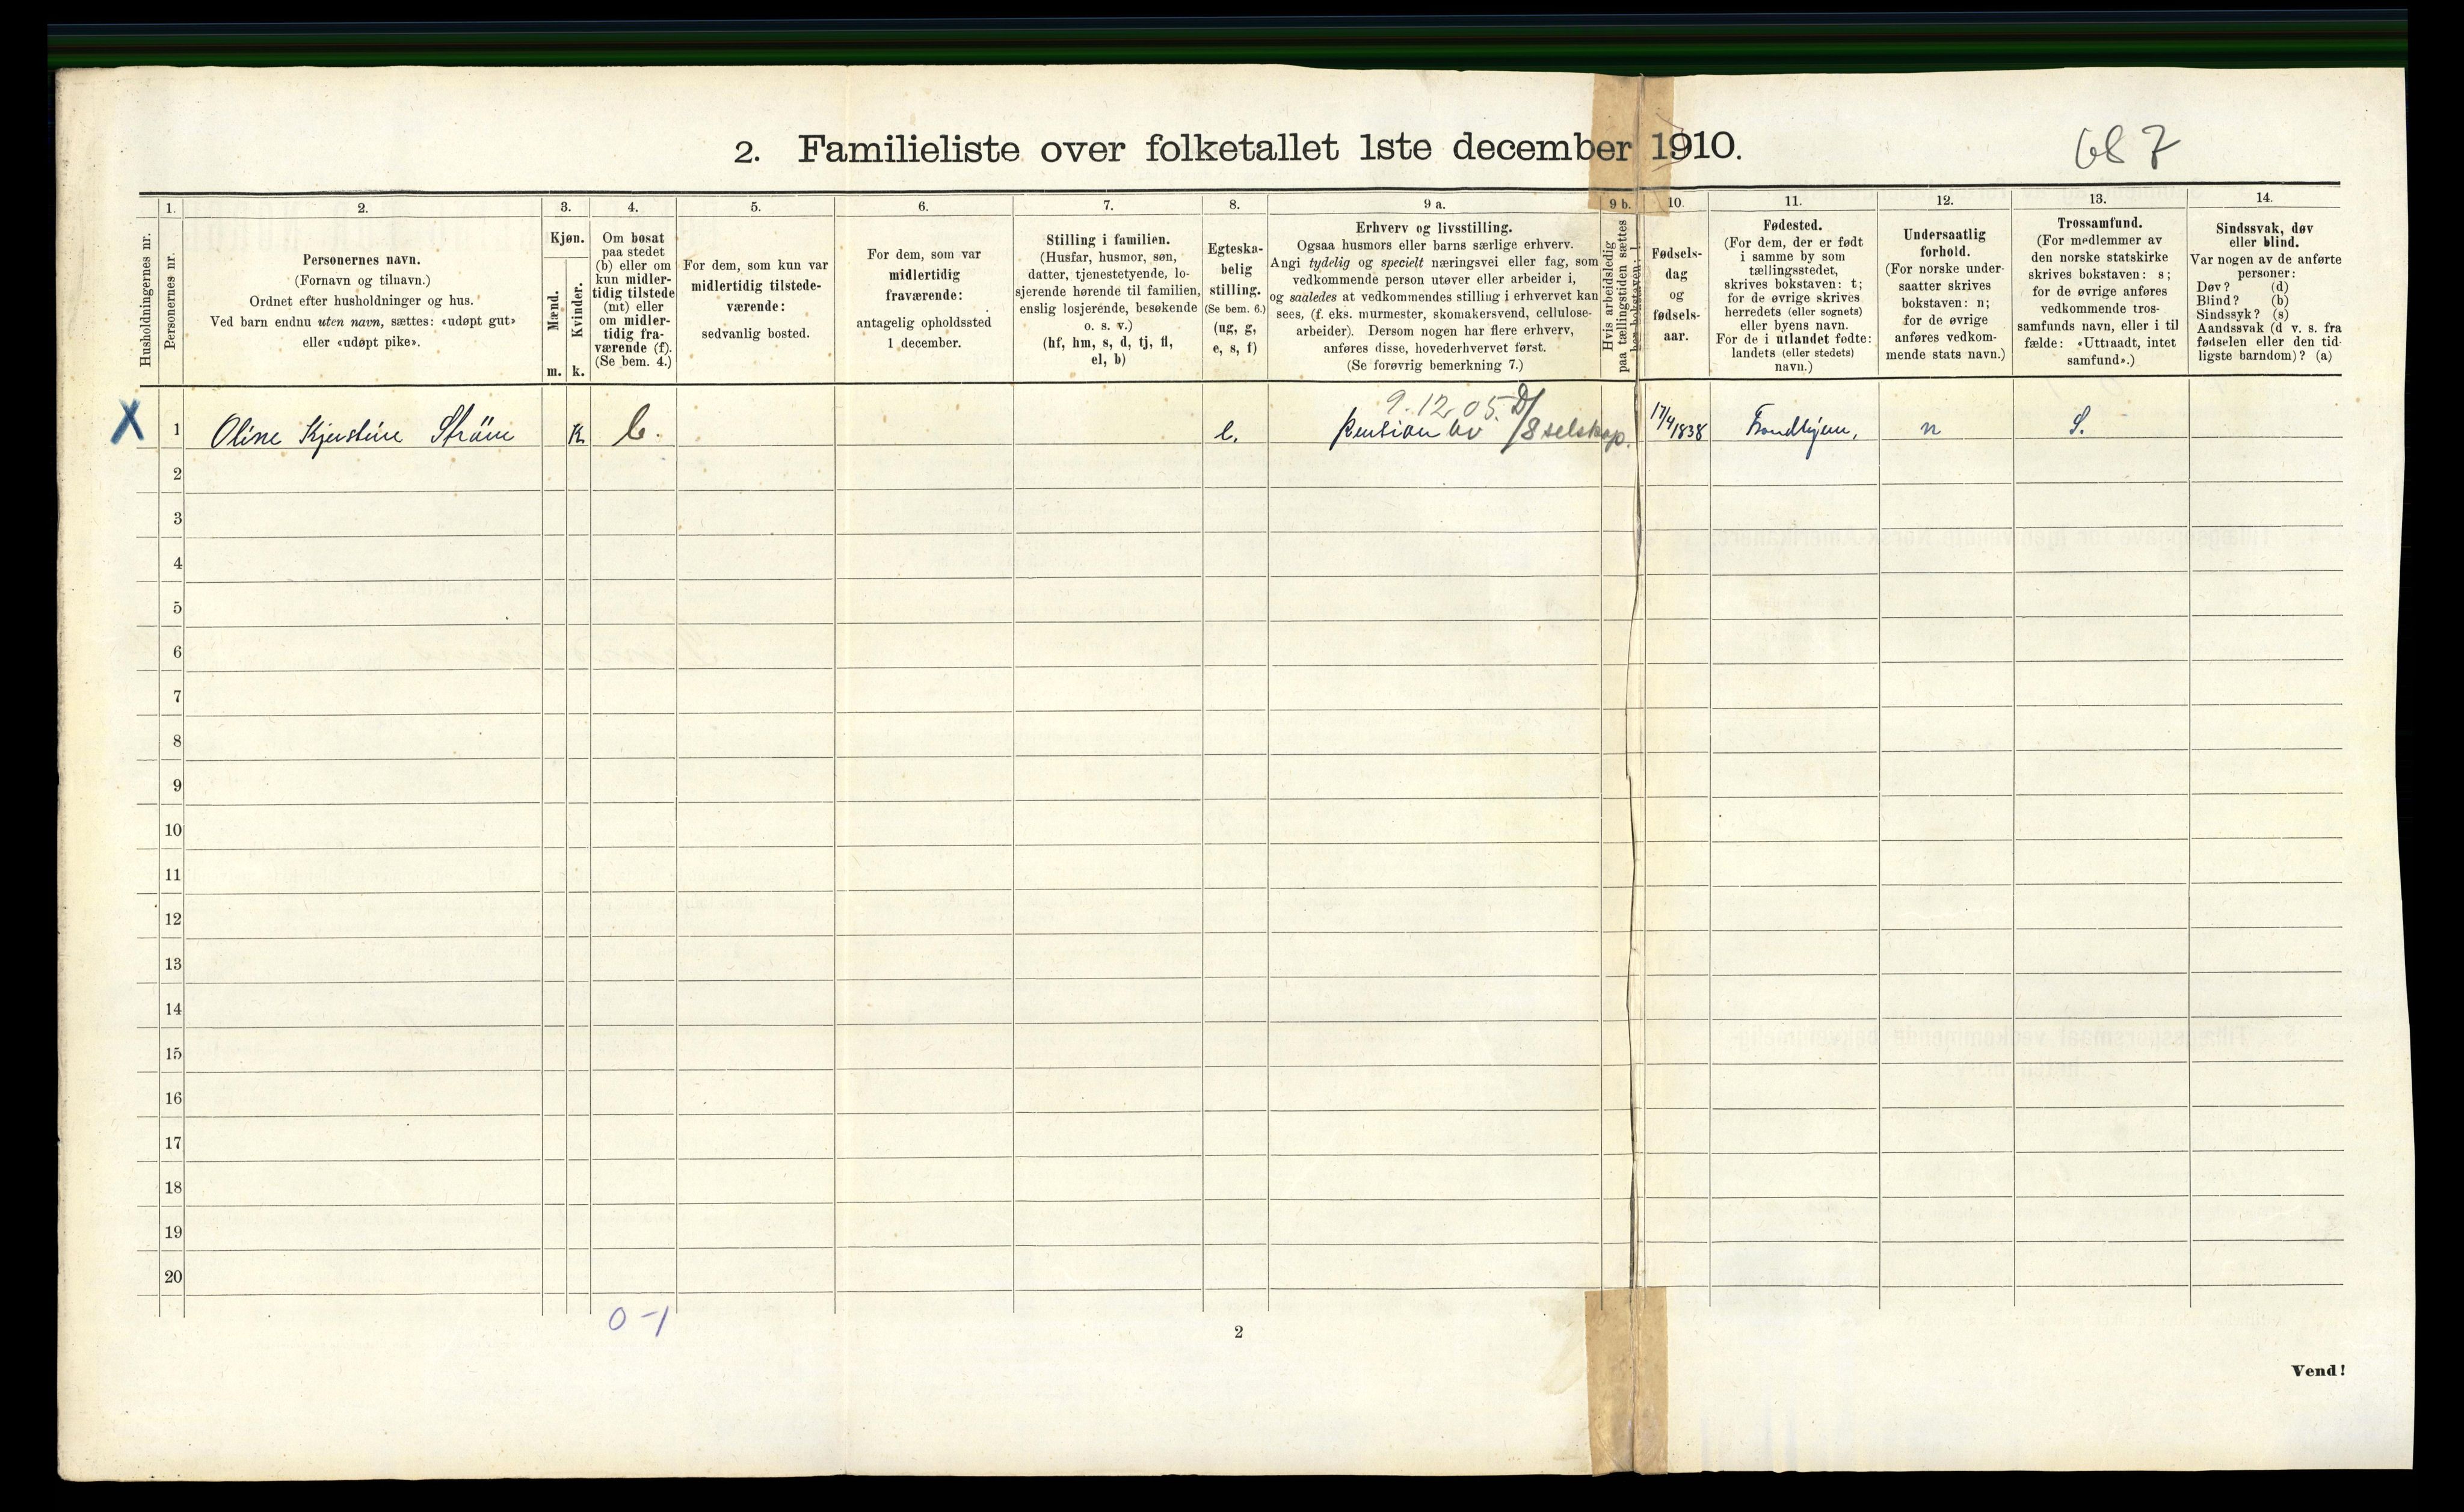 2. Familieliste over folketallet 1ste december 1910.
687
Husholdningernes nr.
1.
Personernes nr.
2.
Personernes navn.
(Fornavn og tilnavn.)
Ordnet efter husholdninger og hus.
Ved barn endnu uten navn, sættes: «udøpt gut»
eller «udøpt pike».
3.
Kjøn.
Mænd.
Kvinder.
m. k.
4.
Om bosat
paa stedet
(b) eller om
kun midler-
tidig tilstede
(mt) eller
om midler-
tidig fra-
værende (f).
(Se bem. 4.)
5.
For dem, som kun var
midlertidig tilstede-
værende:
sedvanlig bosted.
6.
For dem, som var
midlertidig
fraværende:
antagelig opholdssted
1 december.
7.
Stilling i familien.
(Husfar, husmor, søn,
datter, tjenestetyende, lo-
sjerende hørende til familien,
enslig losjerende, besøkende
o. s. v.)
(hf, hm, s, d, tj, fl,
el, b)
8.
Egteska-
belig
stilling.
(Se bem. 6.)
(ug, g,
e, s, f)
9 a.
Erhverv og livsstilling.
Ogsaa husmors eller barns særlige erhverv.
Angi tydelig og specielt næringsvei eller fag, som
vedkommende person utøver eller arbeider i,
og saaledes at vedkommendes stilling i erhvervet kan
sees, (f. eks. murmester, skomakersvend, cellulose-
arbeider). Dersom nogen har flere erhverv,
anføres disse, hovederhvervet først.
(Se forøvrig bemerkning 7.)
9 b.
Hvis arbeidsledig
paa tællingstiden sættes
her bokstaven: l.
10.
Fødsels-
dag
og
fødsels-
aar.
11.
Fødested.
(For dem, der er født
i samme by som
tællingsstedet,
skrives bokstaven: t;
for de øvrige skrives
herredets (eller sognets)
eller byens navn.
For de i utlandet fødte:
landets (eller stedets)
navn.)
12.
Undersaatlig
forhold.
(For norske under-
saatter skrives
bokstaven: n;
for de øvrige
anføres vedkom-
mende stats navn.)
13.
Trossamfund.
(For medlemmer av
den norske statskirke
skrives bokstaven: s;
for de øvrige anføres
vedkommende tros-
samfunds navn, eller i til
fælde: «Uttraadt, intet
samfund».)
14.
Sindssvak, døv
eller blind.
Var nogen av de anførte
personer:
Døv? (d)
Blind? (b)
Sindssyk? (s)
Aandssvak (d v. s. fra
fødselen eller den tid-
ligste barndom)? (a)
9.12.05.
X 1 Oline Kjerstine Strøm k b. e. Pension av D/S selskap. 17/4 1838 Trondhjem, n S.
2
3
4
5
6
7
8
9
10
11
12
13
14
15
16
17
18
19
20
0-1
2
Vend!